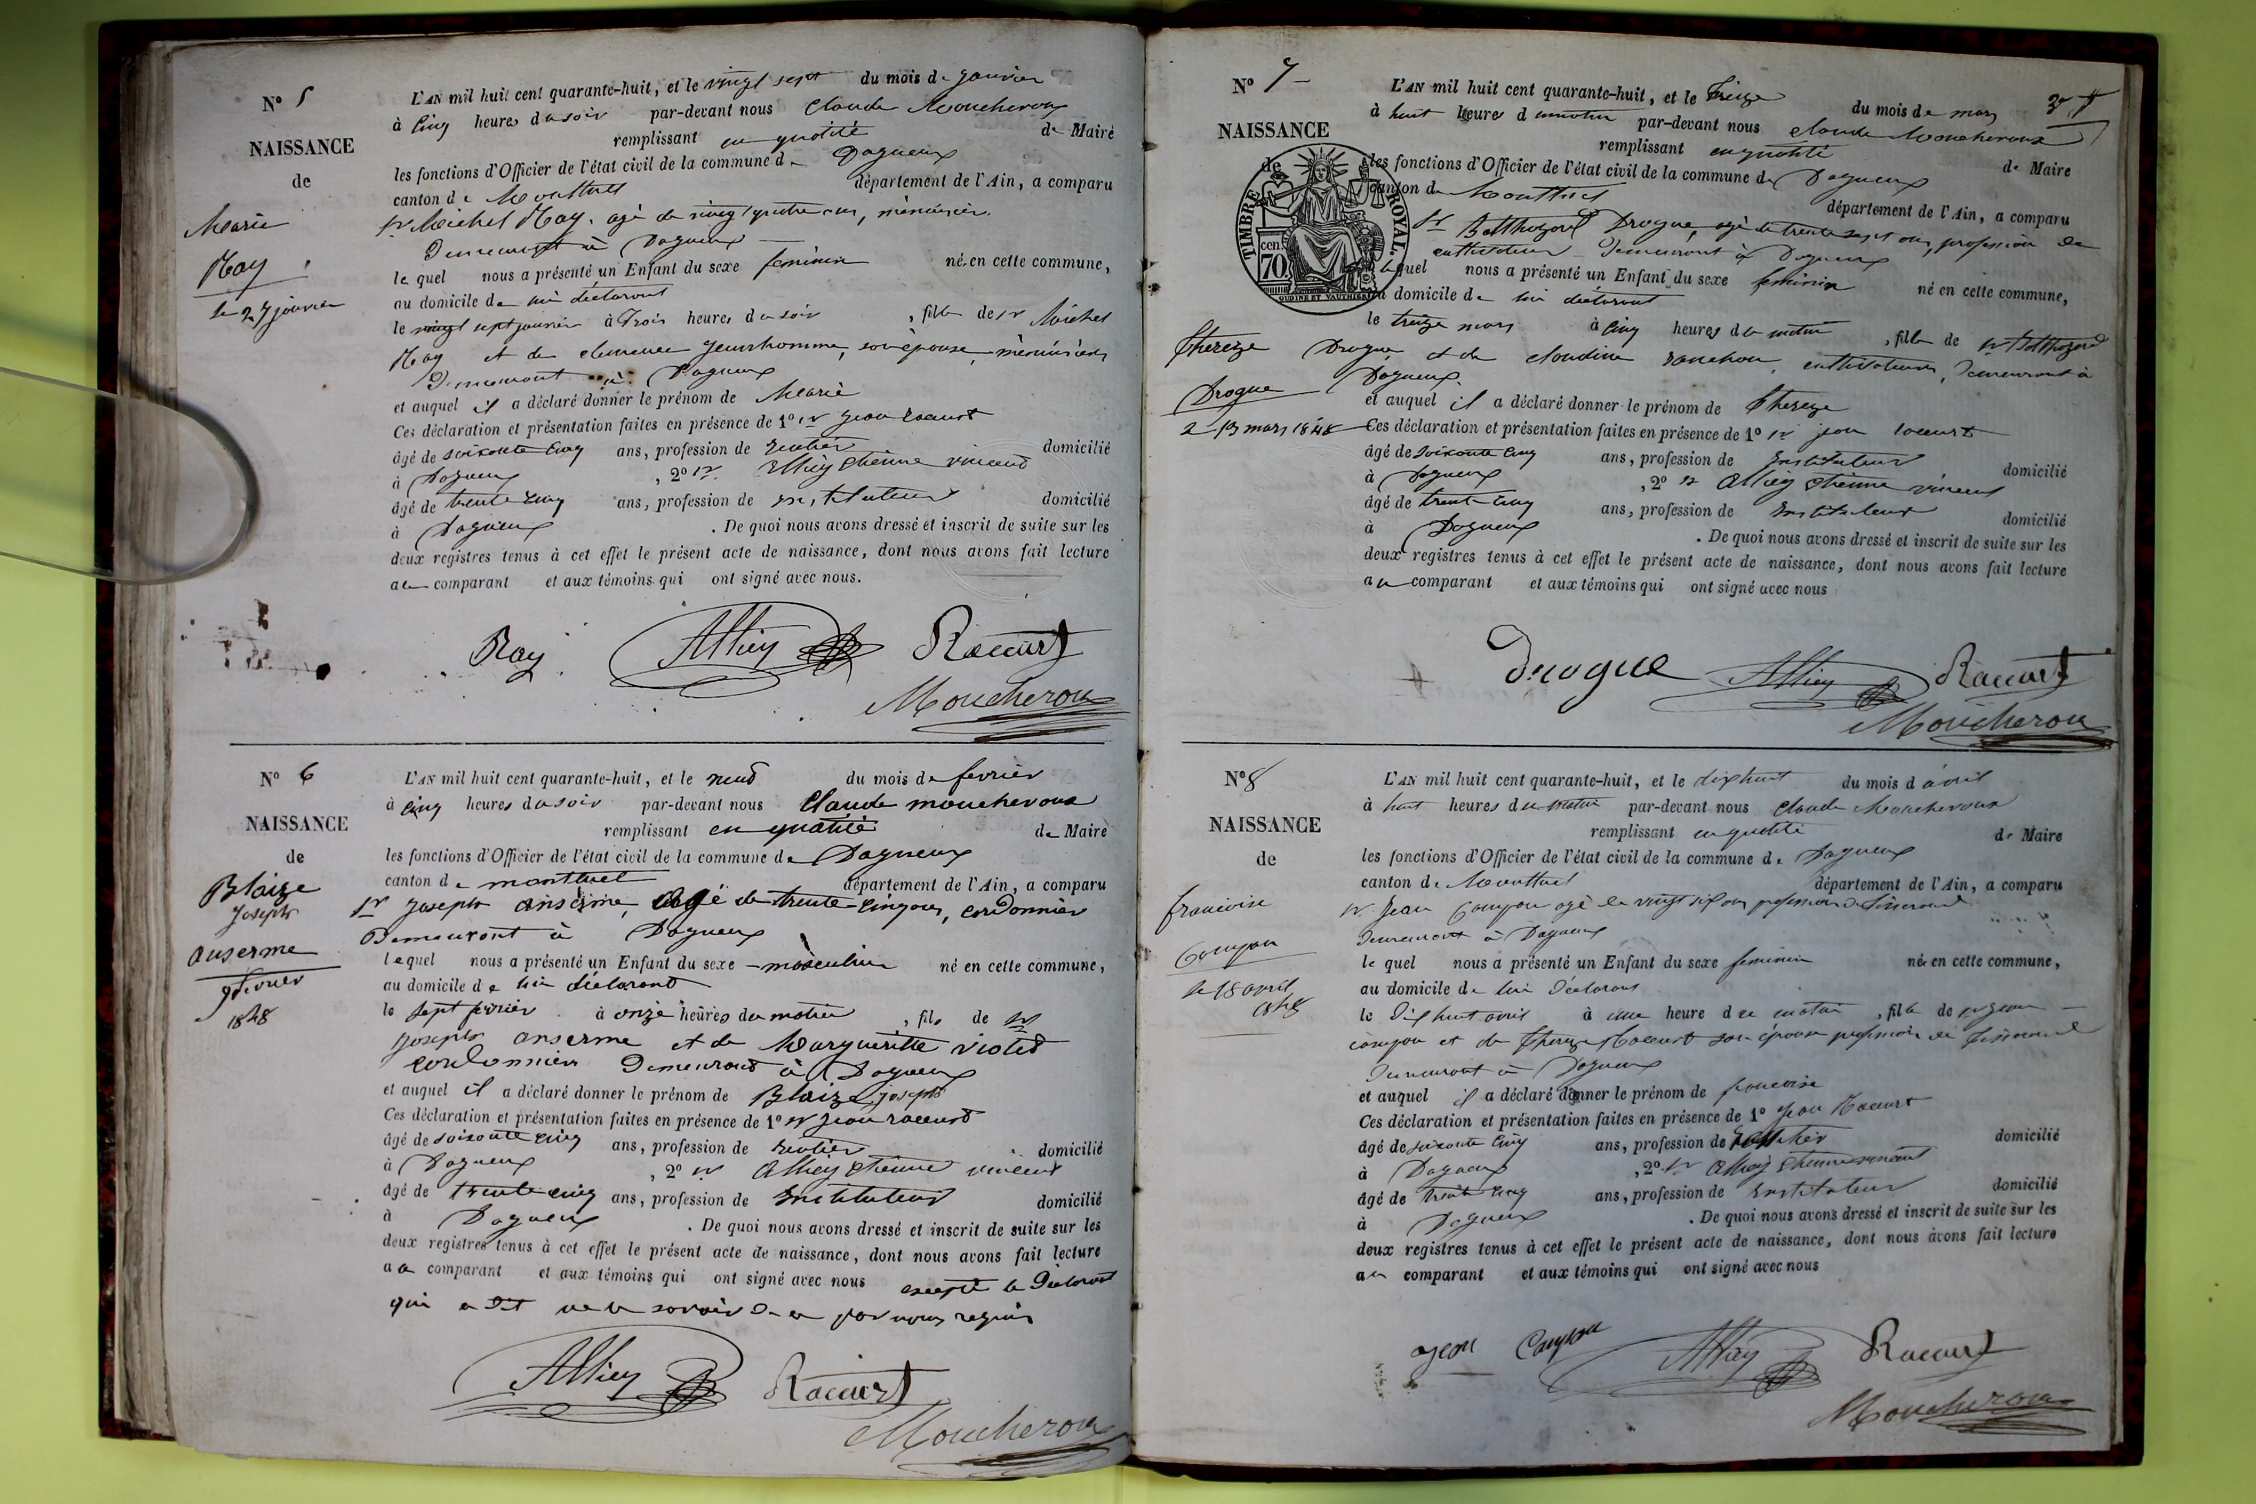 N° 5
NAISSANCE
de
Marie
Ray
le 27 janvier
L'AN mil huit cent quarante-huit, et le vingt sept du mois de janvier
à cinq heures du soir par-devant nous Claude Moucheroux
remplissant en qualité de Maire
les fonctions d'Officier de l'état civil de la commune de Dagneux
canton de Montluel département de l'Ain, a comparu
sr Michel Ray, agé de vingt quatre ans, menuisier
Demeurant à Dagneux
le quel nous a présenté un Enfant du sexe feminin né en cette commune,
au domicile de lui déclarant
le vingt sept janvier à trois heures du soir, fille de sr Michel
Ray et de clemence jeunhomme, son épouse, menuisiers
Demeurant à Dagneux
et auquel il a déclaré donner le prénom de Marie
Ces déclaration et présentation faites en présence de 1° sr jean racurt
âgé de soixante cinq ans, profession de rentier domicilié
à Dagneux, 2° sr Alliey etienne vincent
âgé de trente cinq ans, profession de instituteur domicilié
à Dagneux. De quoi nous avons dressé et inscrit de suite sur les
deux registres tenus à cet effet le présent acte de naissance, dont nous avons fait lecture
au comparant et aux témoins qui ont signé avec nous.
Ray Alliey Racurt
Moucheroux
N° 6
NAISSANCE
de
Blaize
joseph
anserme
9 février
1848
L'AN mil huit cent quarante-huit, et le neuf du mois de fevrier
à cinq heures du soir par-devant nous Claude moucheroux
remplissant en qualité de Maire
les fonctions d'Officier de l'état civil de la commune de Dagneux
canton de montluel département de l'Ain, a comparu
sr joseph anserme, agé de trente-cinq ans, cordonnier
Demeurant à Dagneux
le quel nous a présenté un Enfant du sexe masculin né en cette commune,
au domicile de lui déclarant
le sept fevrier à onze heures du matin, fils de sr
joseph anserme et de Margueritte violet
cordonniers Demeurant à Dagneux
et auquel il a déclaré donner le prénom de Blaize joseph
Ces déclaration et présentation faites en présence de 1° sr jean racurt
âgé de soixante cinq ans, profession de rentier domicilié
à Dagneux, 2° sr Alliey etienne vincent
âgé de trente cinq ans, profession de instituteur domicilié
à Dagneux. De quoi nous avons dressé et inscrit de suite sur les
deux registres tenus à cet effet le présent acte de naissance, dont nous avons fait lecture
au comparant et aux témoins qui ont signé avec nous excepté le Déclarant
qui a dit ne le savoir de ce par nous requis
Alliey Racurt
Moucheroux
N° 7
NAISSANCE
de
TIMBRE ROYAL.
cen.
70
OUDINÉ ET VAUTHIER
Thereze
Drogue
2 13 mars 1848
L'AN mil huit cent quarante-huit, et le treize du mois de mars
à huit heures du matin par-devant nous claude Moucheroux
remplissant en qualité de Maire
les fonctions d'Officier de l'état civil de la commune de Dagneux
canton de Montluel département de l'Ain, a comparu
sr Balthazard Drogue, agé de trente sept ans, profession de
cultivateur Demeurant à Dagneux
le quel nous a présenté un Enfant du sexe feminin né en cette commune,
au domicile de lui déclarant
le treize mars à cinq heures du matin, fille de sr Balthazard
Drogue et de claudine ranchon, cultivateurs, Demeurant à
Dagneux.
et auquel il a déclaré donner le prénom de Thereze
Ces déclaration et présentation faites en présence de 1° sr jean racurt
âgé de soixante cinq ans, profession de instituteur domicilié
à Dagneux, 2° sr Alliey etienne vincent
âgé de trente cinq ans, profession de instituteur domicilié
à Dagneux. De quoi nous avons dressé et inscrit de suite sur les
deux registres tenus à cet effet le présent acte de naissance, dont nous avons fait lecture
au comparant et aux témoins qui ont signé avec nous
Drogue Alliey Racurt
Moucheroux
N° 8
NAISSANCE
de
francoise
Compan
le 18 avril
1848
L'AN mil huit cent quarante-huit, et le dix huit du mois d avril
à huit heures du matin par-devant nous Claude Moucheroux
remplissant en qualité de Maire
les fonctions d'Officier de l'état civil de la commune de Dagneux
canton de Montluel département de l'Ain, a comparu
sr Jean Compan agé de vingt six ans profession de tisserand
Demeurant à Dagneux
le quel nous a présenté un Enfant du sexe feminin née en cette commune,
au domicile de lui Déclarant
le Dix huit avril à une heure du matin, fille de sr jean
compan et de Thereze Racurt son épouse profession de tisserand
Demeurant à Dagneux
et auquel il a déclaré donner le prénom de francoise
Ces déclaration et présentation faites en présence de 1° jean Racurt
âgé de soixante cinq ans, profession de rentier domicilié
à Dagneux, 2° sr Alliey etienne vincent
âgé de trente cinq ans, profession de instituteur domicilié
à Dagneux. De quoi nous avons dressé et inscrit de suite sur les
deux registres tenus à cet effet le présent acte de naissance, dont nous avons fait lecture
au comparant et aux témoins qui ont signé avec nous
jean Alliey Racurt
Moucheroux